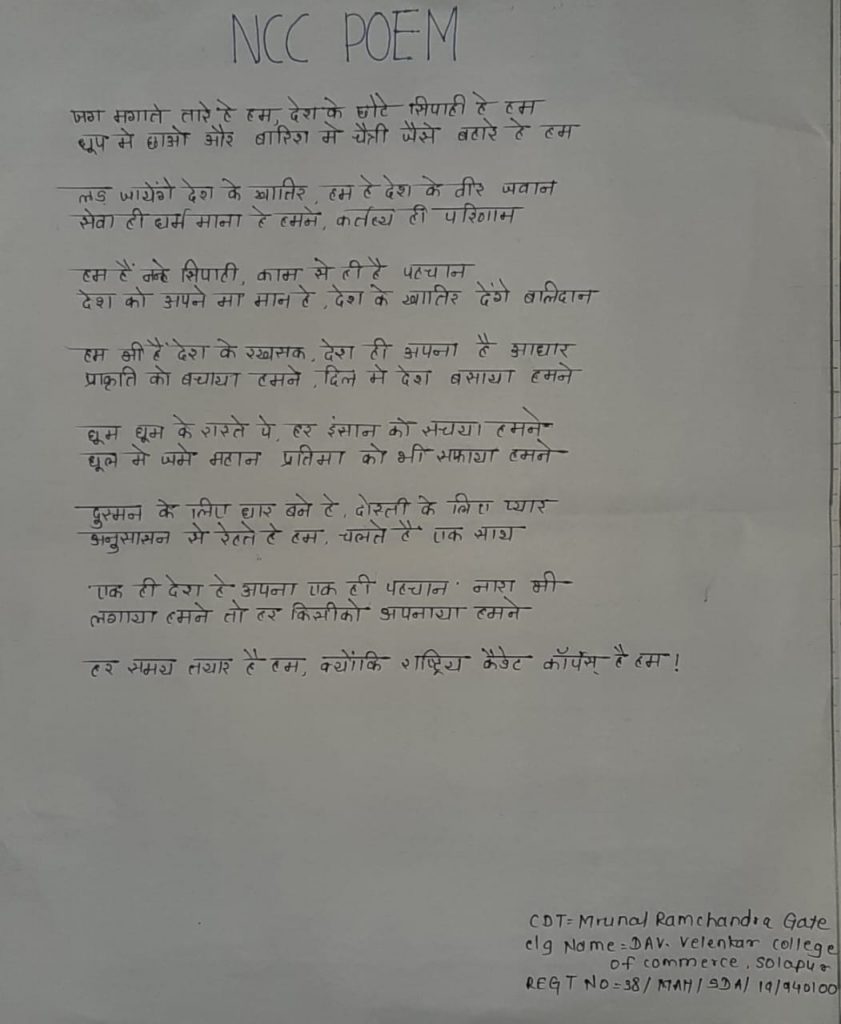 NCC POEM
जग मगाते तारे हे हम, देश के छोटे सिपाही हे हम
धूप मे छाओ और बारिश मे चैत्री जैसे बहारे हे हम
लड़ जायेंगे देश के खातिर, हम हे देश के वीर जवान
सेवा ही धर्म माना हे हमने, कर्तव्य ही परिणाम
हम हैं नन्हे सिपाही, काम से ही है पहचान
देश को अपने मा मान हे, देश के खातिर देंगे बलिदान
हम भी हैं देश के रखसक, देश ही अपना है आधार
प्राकृति को बचाया हमने, दिल मे देश बसाया हमने
धूम धूम के रास्ते पे, हर इंसान को सचया हमने
धूल मे जमे महान प्रतिमा को भी सफाया हमने
दुस्मन के लिए धार बने हे, दोस्ती के लिए प्यार
अनुसासन से रेहते हे हम, चलते हैं एक साथ
एक ही देश हे अपना एक ही पहचान नारा भी
लगाया हमने तो हर किसीको अपनाया हमने
हर समय तयार है हम, क्योंकि राष्ट्रिय कैडेट कॉर्पस् है हम!
CDT= Mrunal Ramchandra Gate
clg Name = DAV. Velenkar college
of commerce, Solapur
REGT NO = 38/ MAH/ SDA/ 19/940100